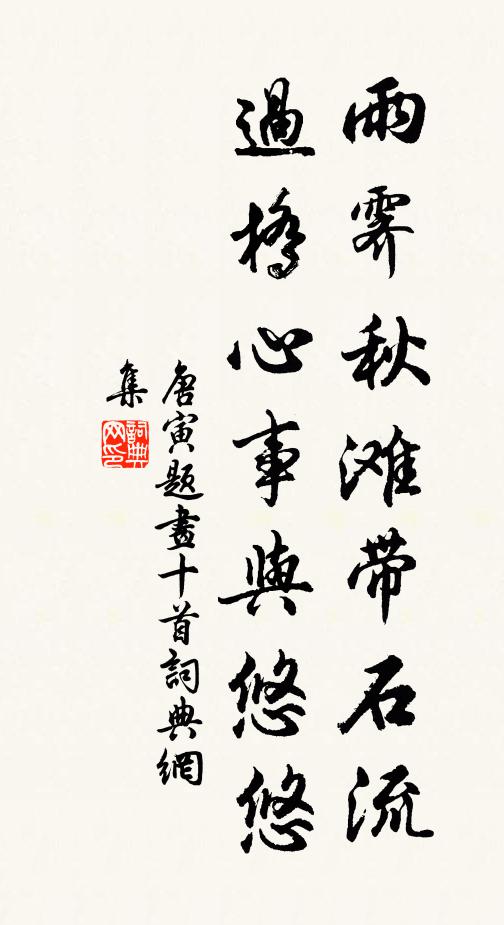 雨霽秋滩带石流
過橋心事與悠悠
唐寅題畫十首詞典網
集
詞典
网印